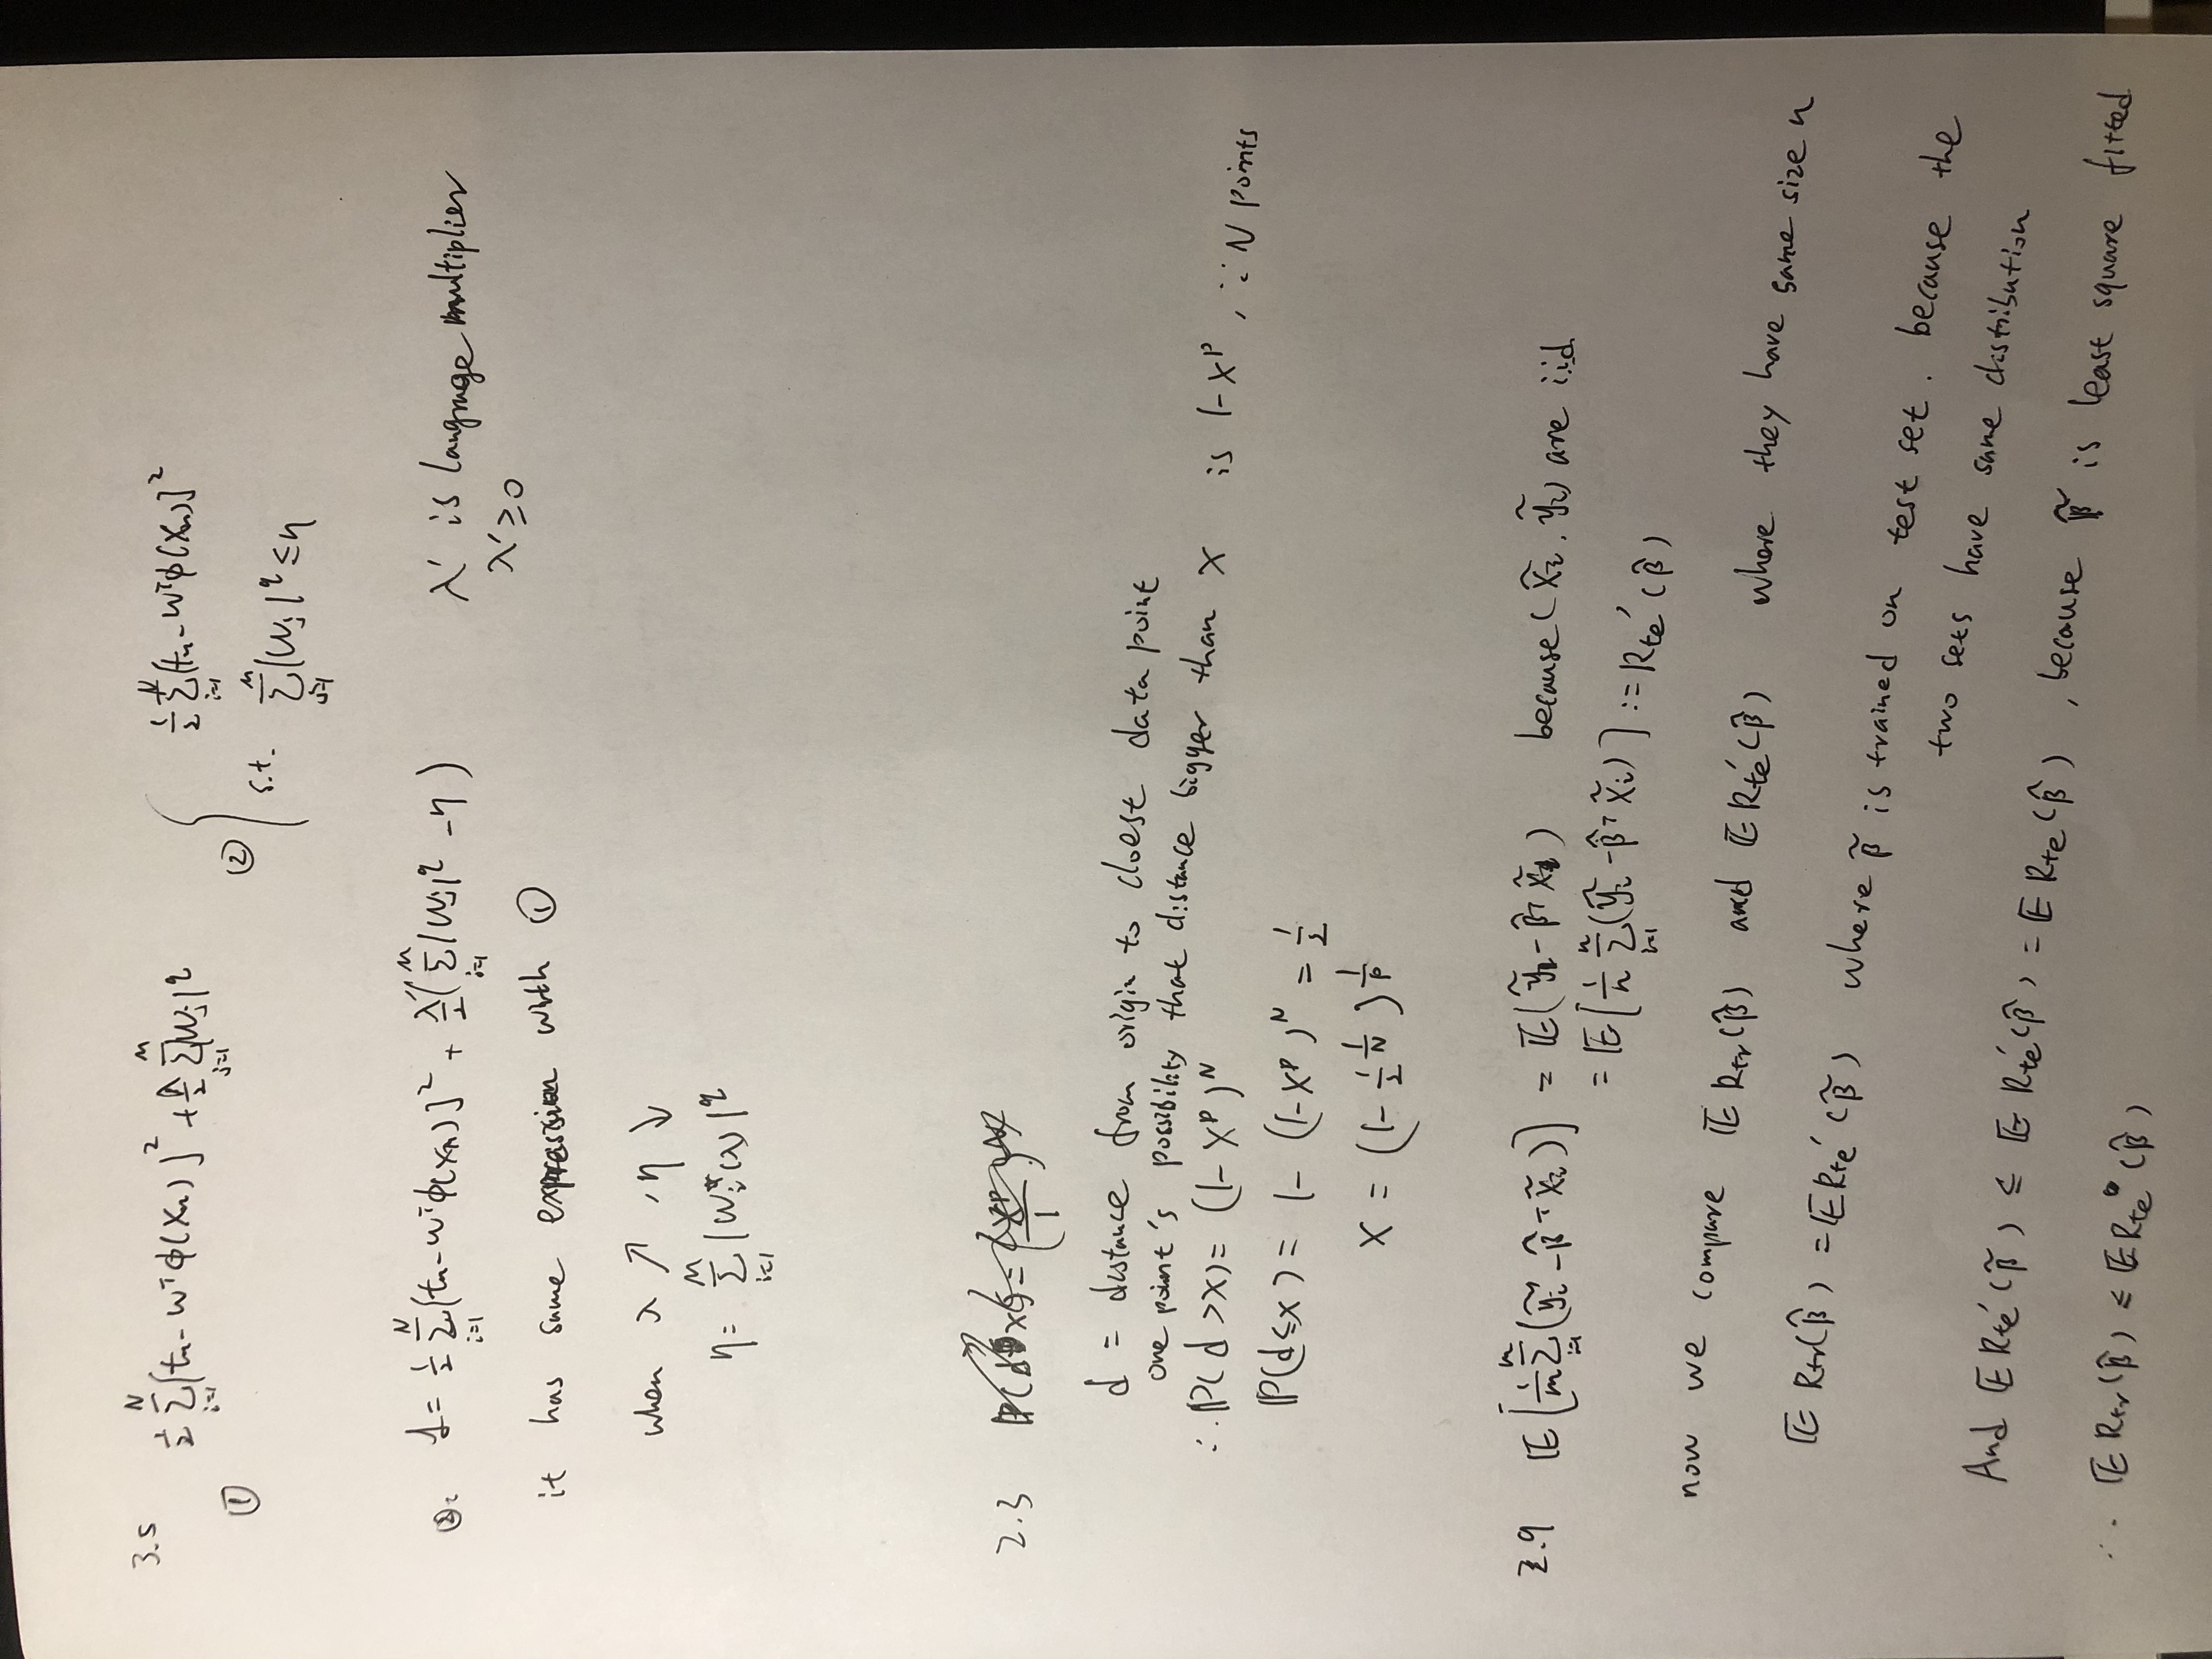 3.5
① ½ Σ_{i=1}^{N} {tₙ - wᵀϕ(xₙ)}² + λ/2 Σ_{j=1}^{M} |wⱼ|^q ② { ½ Σ_{i=1}^{N} {tₙ - wᵀϕ(xₙ)}²
s.t. Σ_{j=1}^{M} |wⱼ|^q ≤ η
②: L = ½ Σ_{i=1}^{N} {tₙ - wᵀϕ(xₙ)}² + λ'/2 ( Σ_{i=1}^{M} |wⱼ|^q - η ) λ' is langrage multiplier
λ' ≥ 0
it has same expression with ①
when λ ↗ , η ↓
η = Σ_{i=1}^{M} |wᵢ*(λ)|^q
2.3
d = distance from origin to cloest data point
one point's possibility that distance bigger than x is 1-x^p, ∵ N points
∴ ℙ(d > x) = (1-x^p)^N
ℙ(d ≤ x) = 1 - (1-x^p)^N = ½
x = (1 - ½^{1/N})^{1/p}
2.9 𝔼[ 1/m Σ_{i=1}^{m} (ỹᵢ - β̂ᵀx̃ᵢ) ] = 𝔼(ỹᵢ - β̂ᵀx̃ᵢ) because (x̃ᵢ, ỹᵢ) are iid
= 𝔼[ 1/n Σ_{i=1}^{n} (ỹᵢ - β̂ᵀx̃ᵢ) ] := Rte'(β̂)
now we compare 𝔼 Rtr(β̂) and 𝔼 Rte'(β̂) where they have same size n
𝔼 Rtr(β̂) = 𝔼 Rte'(β̃) where β̃ is trained on test set. because the
two sets have same distribution
And 𝔼 Rte'(β̃) ≤ 𝔼 Rte'(β̂) = 𝔼 Rte(β̂), because β̃ is least square fitted
∴ 𝔼 Rtr(β̂) ≤ 𝔼 Rte(β̂)